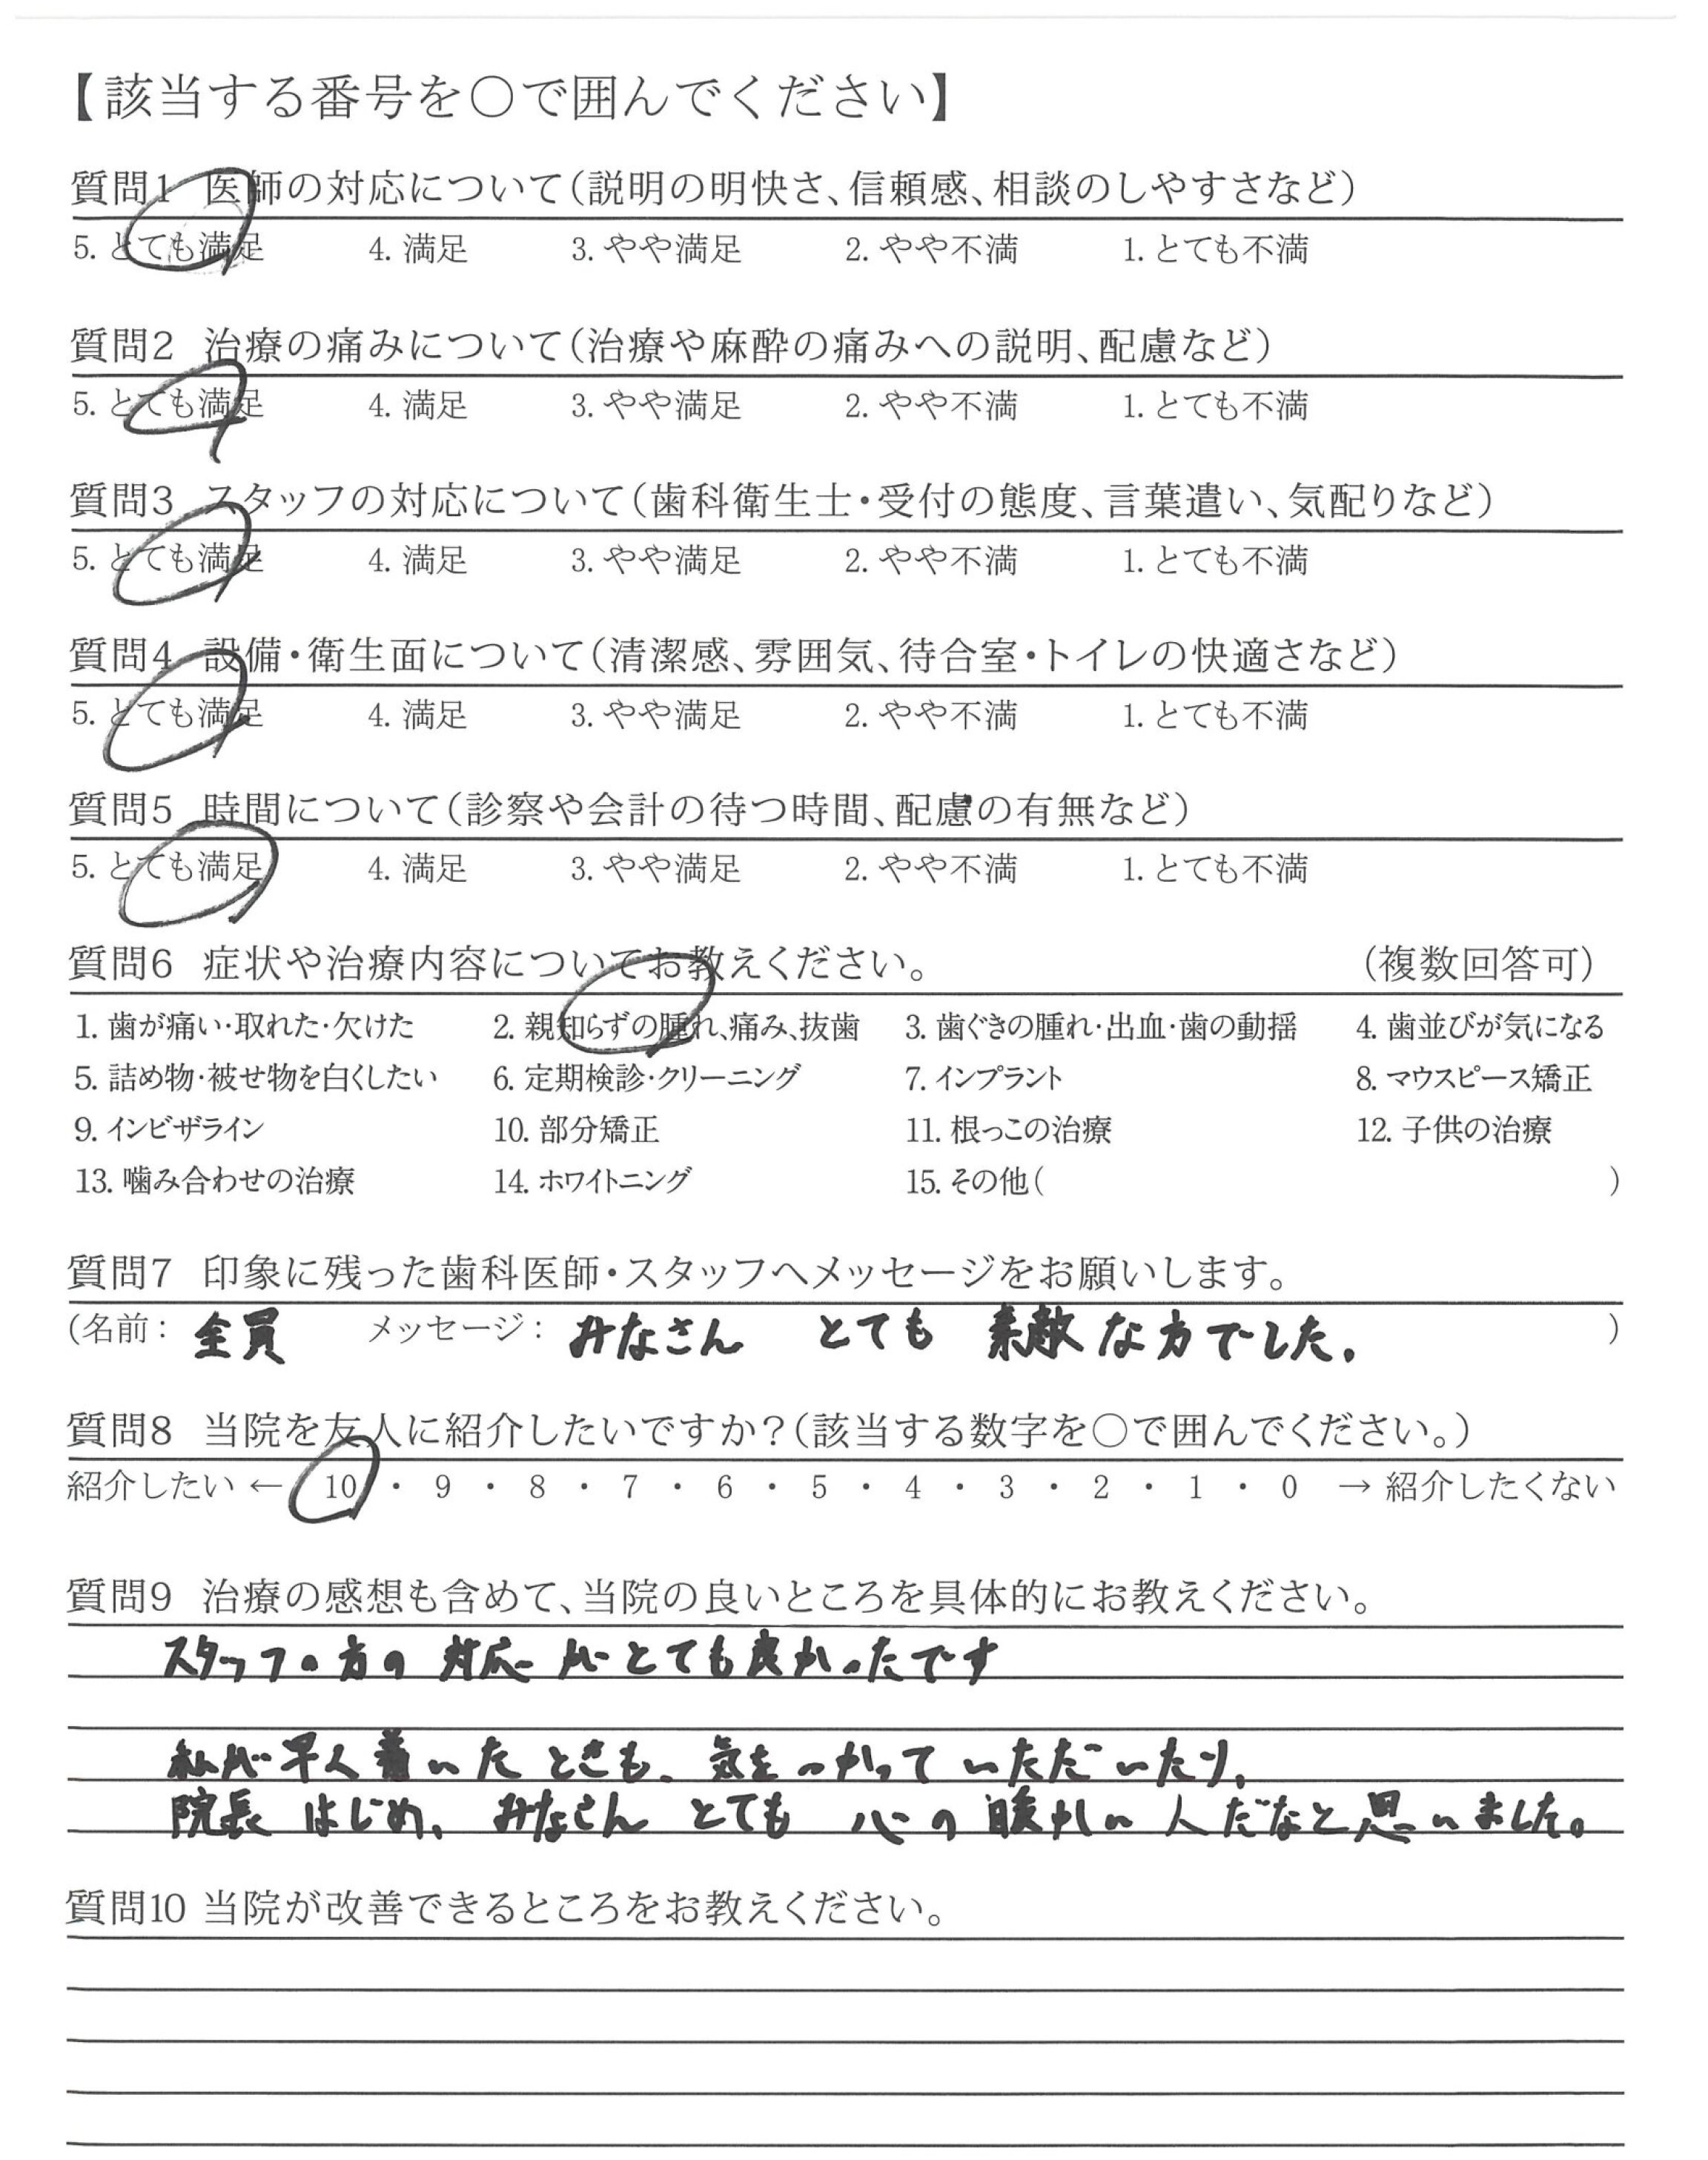 【該当する番号を○で囲んでください】
質問1 医師の対応について(説明の明快さ、信頼感、相談のしやすさなど)
5. とても満足 4. 満足 3. やや満足 2. やや不満 1. とても不満
質問2 治療の痛みについて(治療や麻酔の痛みへの説明、配慮など)
5. とても満足 4. 満足 3. やや満足 2. やや不満 1. とても不満
質問3 スタッフの対応について(歯科衛生士・受付の態度、言葉遣い、気配りなど)
5. とても満足 4. 満足 3. やや満足 2. やや不満 1. とても不満
質問4 設備・衛生面について(清潔感、雰囲気、待合室・トイレの快適さなど)
5. とても満足 4. 満足 3. やや満足 2. やや不満 1. とても不満
質問5 時間について(診察や会計の待つ時間、配慮の有無など)
5. とても満足 4. 満足 3. やや満足 2. やや不満 1. とても不満
質問6 症状や治療内容についてお教えください。 (複数回答可)
1. 歯が痛い・取れた・欠けた 2. 親知らずの腫れ、痛み、抜歯 3. 歯ぐきの腫れ・出血・歯の動揺 4. 歯並びが気になる
5. 詰め物・被せ物を白くしたい 6. 定期検診・クリーニング 7. インプラント 8. マウスピース矯正
9. インビザライン 10. 部分矯正 11. 根っこの治療 12. 子供の治療
13. 噛み合わせの治療 14. ホワイトニング 15. その他( )
質問7 印象に残った歯科医師・スタッフへメッセージをお願いします。
(名前: 全員 メッセージ: みなさん とても 素敵な方でした。 )
質問8 当院を友人に紹介したいですか?(該当する数字を○で囲んでください。)
紹介したい ← 10 ・ 9 ・ 8 ・ 7 ・ 6 ・ 5 ・ 4 ・ 3 ・ 2 ・ 1 ・ 0 → 紹介したくない
質問9 治療の感想も含めて、当院の良いところを具体的にお教えください。
スタッフの方の 対応が とても良かったです
私が早く着いたときも、気をつかっていただいたり、
院長はじめ、みなさん とても 心の暖かい人だなと思いました。
質問10 当院が改善できるところをお教えください。